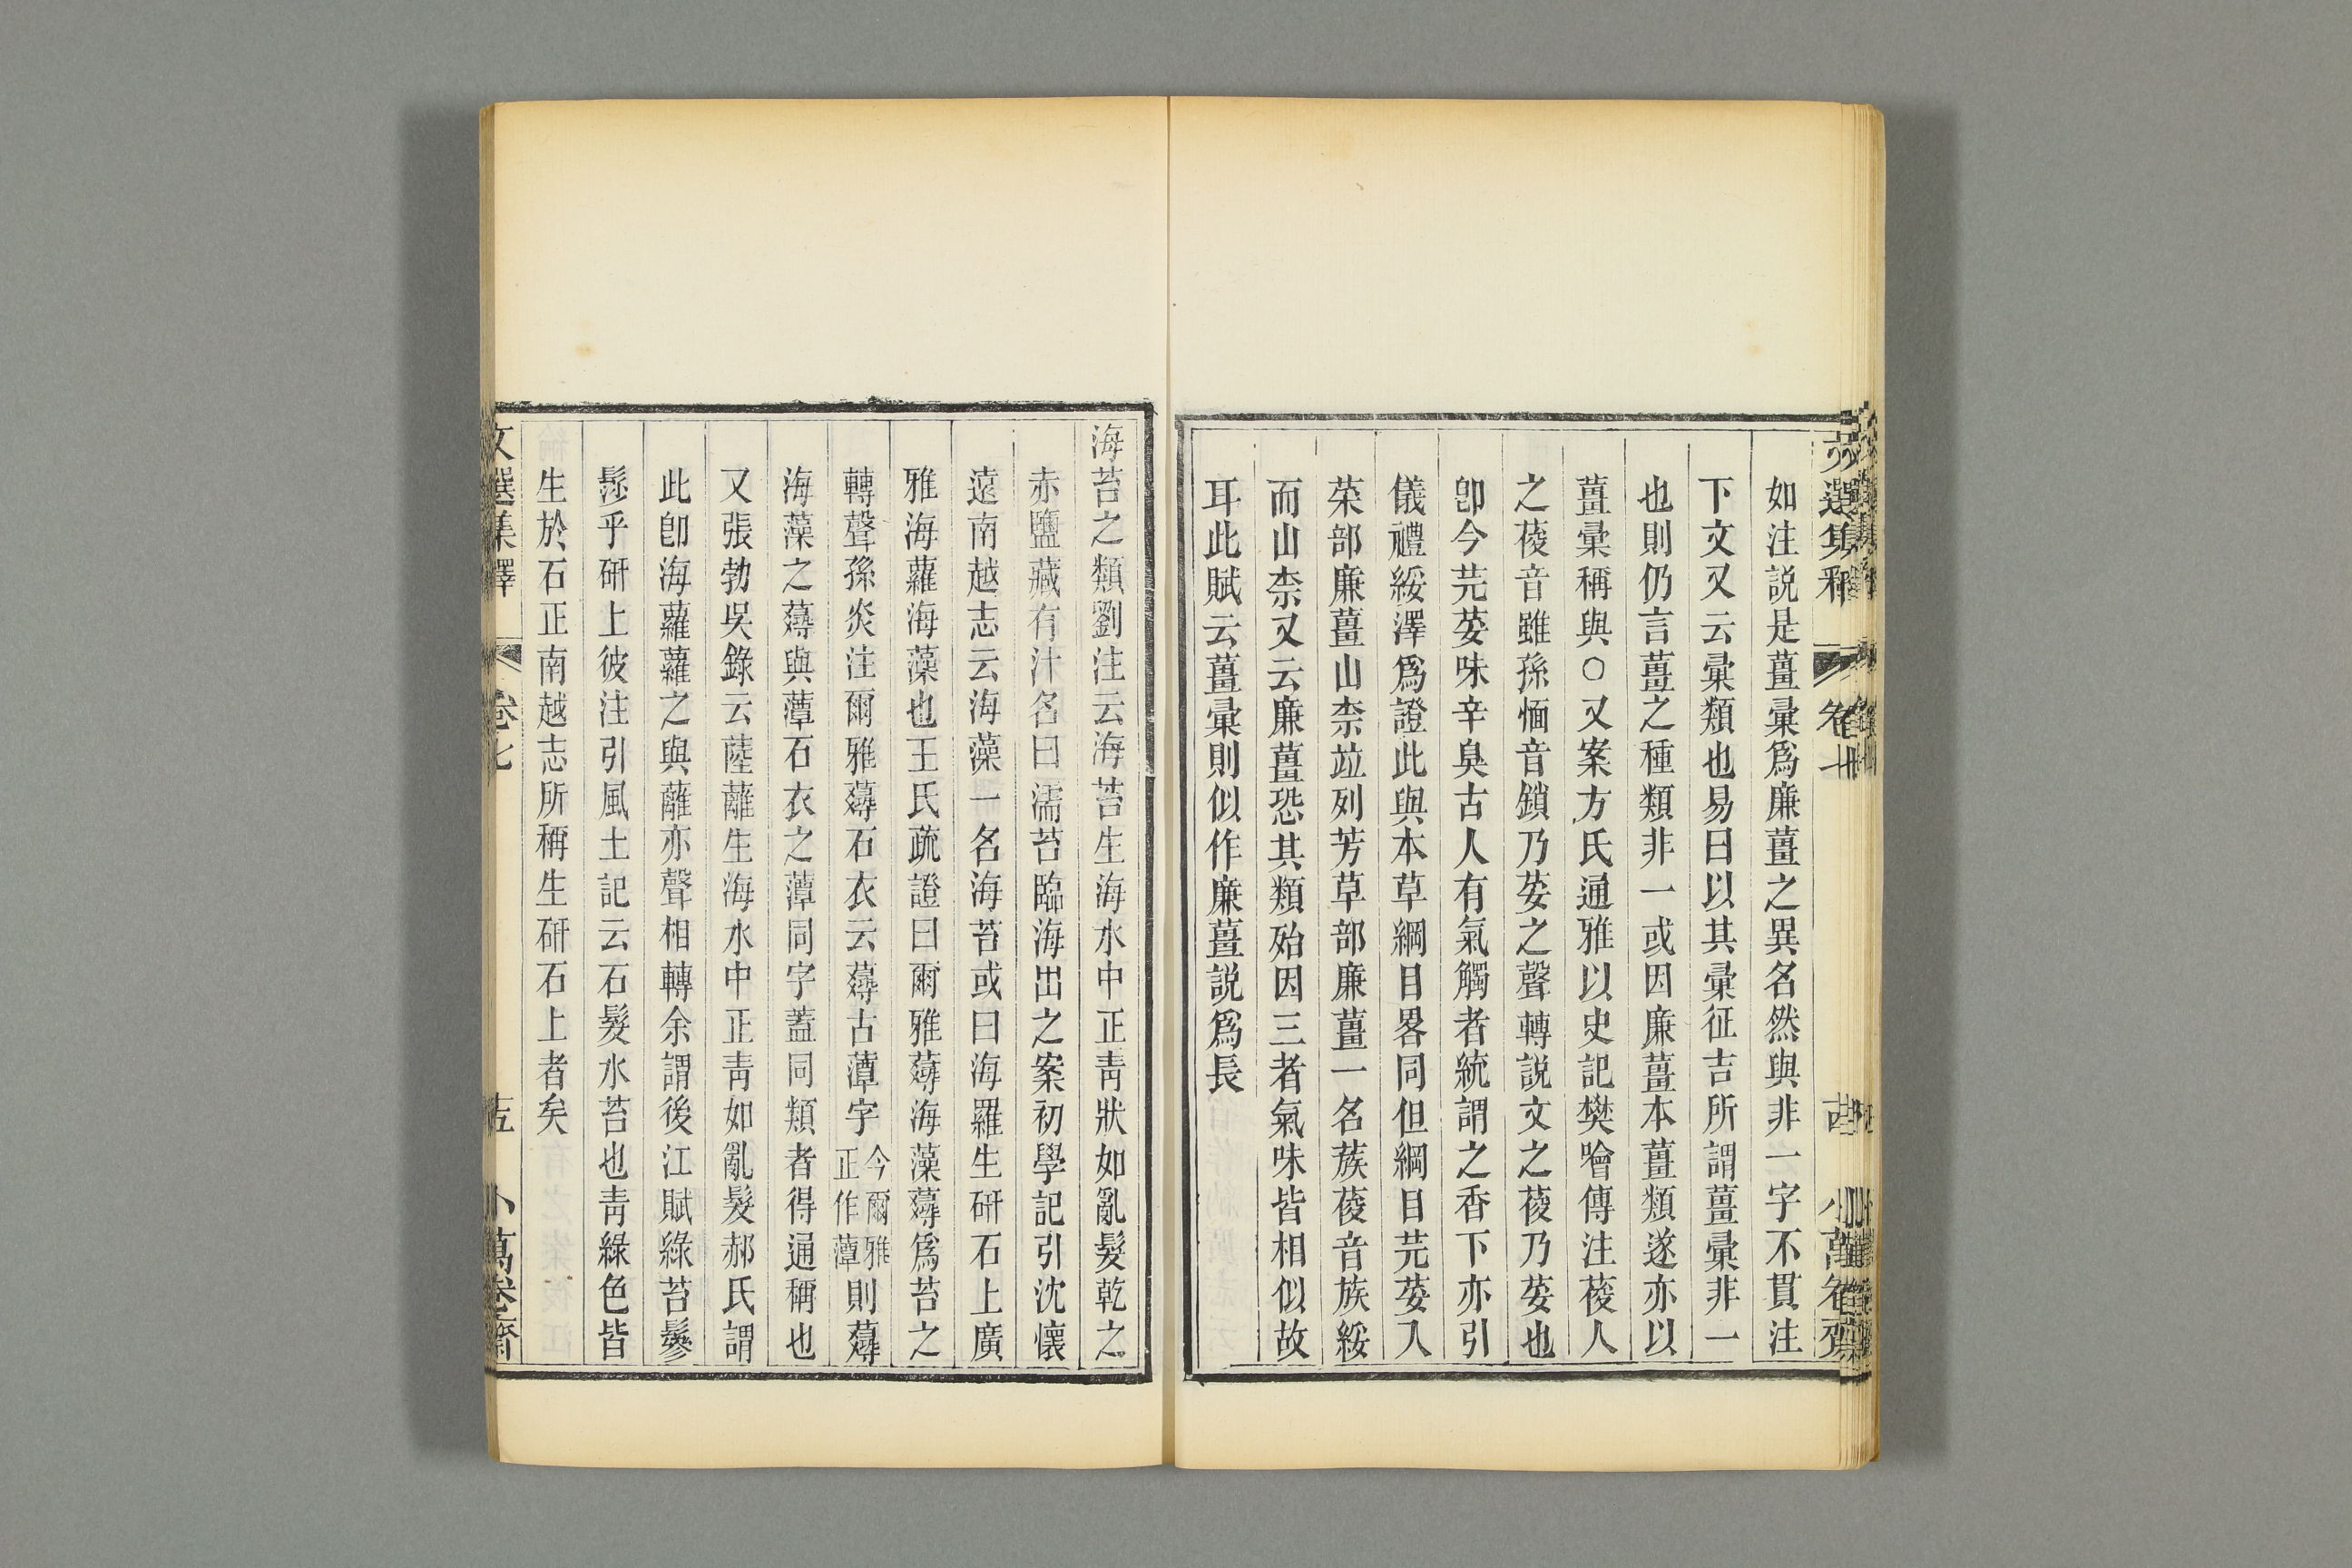 如注説是薑彙爲廉薑之異名然與非一字不貫注
下文又云彙類也易曰以其彙征吉所謂薑彙非一
也則仍言薑之種類非一或因廉薑本薑類遂亦以
薑彙稱與○又案方氏通雅以史記樊噲傳注荾人
之荾音雖孫愐音鎖乃荽之聲轉説文之荾乃荽也
卽今芫荽味辛臭古人有氣觸者統謂之香下亦引
儀禮綏澤爲證此與本草綱目畧同但綱目芫荽入
菜部廉薑山柰竝列芳草部廉薑一名蔟荾音族綏
而山柰又云廉薑恐其類殆因三者氣味皆相似故
耳此賦云薑彙則似作廉薑説爲長
海苔之類劉注云海苔生海水中正靑狀如亂髮乾之
赤鹽藏有汁名曰濡苔臨海出之案初學記引沈懷
遠南越志云海藻一名海苔或曰海羅生研石上廣
雅海蘿海藻也王氏疏證曰爾雅薚海藻薚爲苔之
轉聲孫炎注爾雅薚石衣云薚古藫字今爾雅正作藫則薚
海藻之薚與藫石衣之藫同字蓋同類者得通稱也
又張勃吳錄云薩蘺生海水中正靑如亂髮郝氏謂
此卽海蘿蘿之與蘺亦聲相轉余謂後江賦綠苔鬖
髿乎研上彼注引風土記云石髮水苔也靑綠色皆
生於石正南越志所稱生研石上者矣
文選集釋
卷七
十五
小萬卷齋